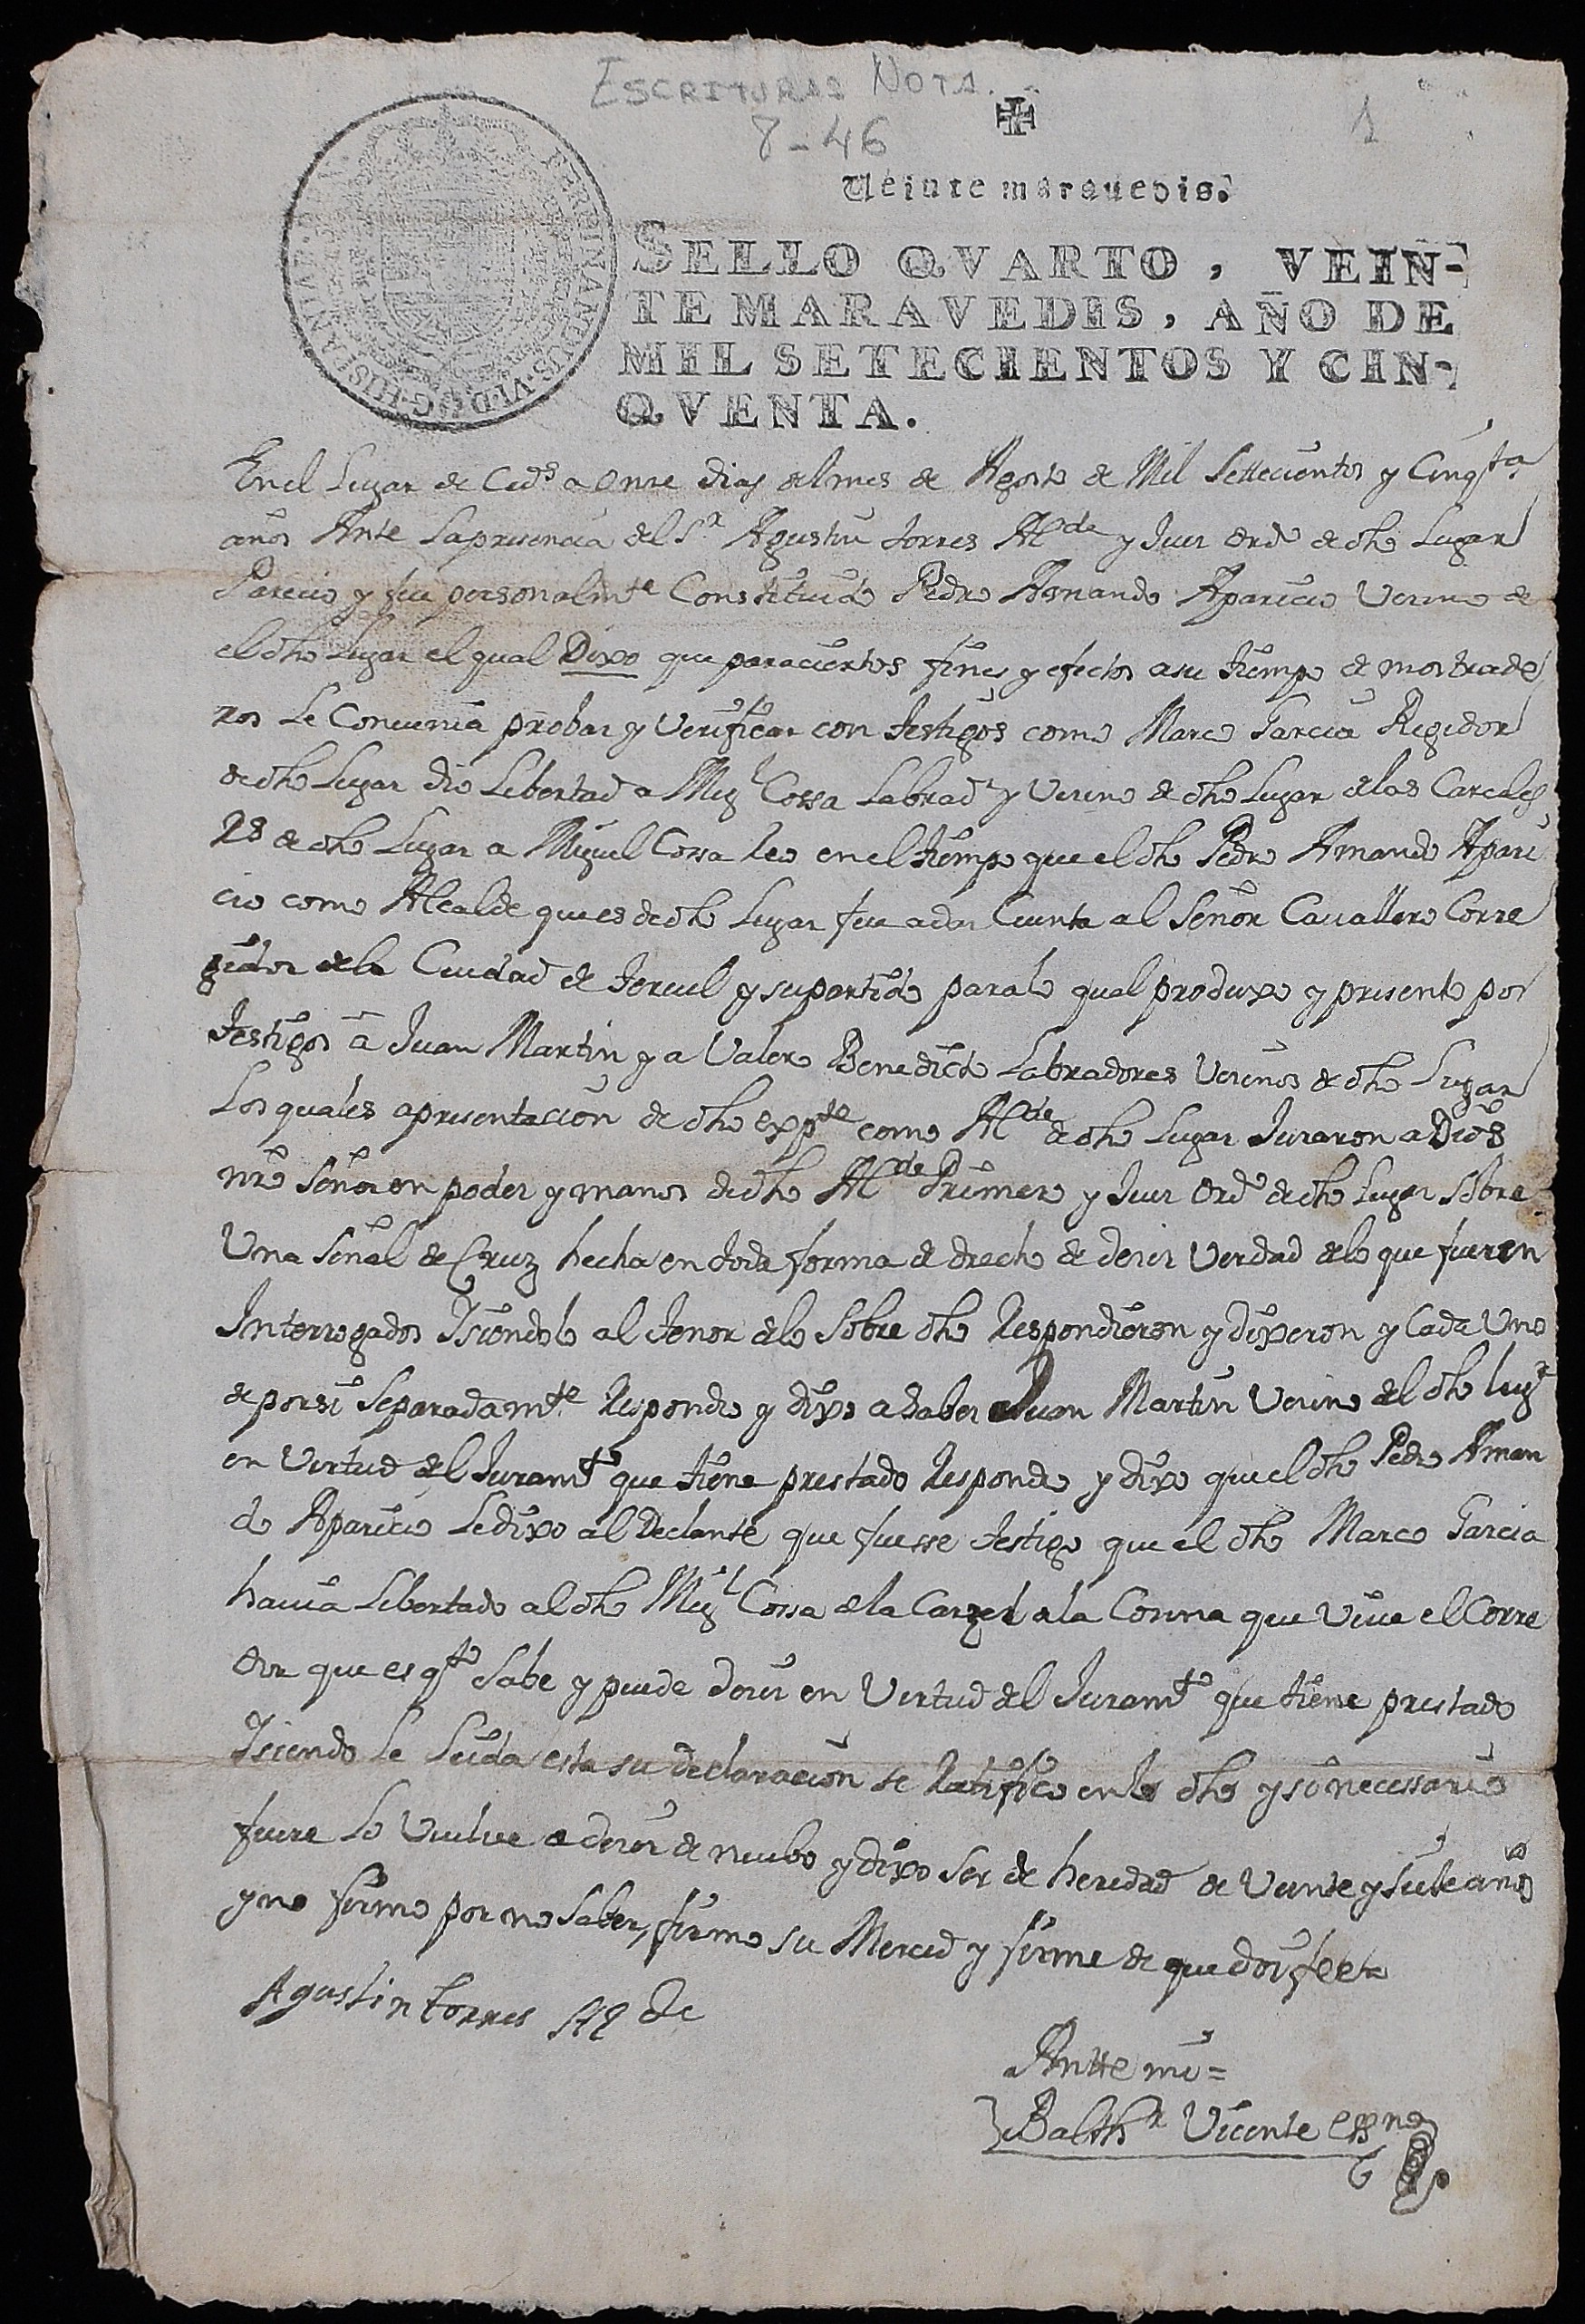 ESCRITURAS NOTA.
8-46
1
Veinte maravedis.
SELLO QVARTO, VEIN-
TE MARAVEDIS, AÑO DE
MIL SETECIENTOS Y CIN-
QVENTA.
FERDINANDUS·VI·D·G·HISPANIAR
En el Lugar de a Onze dias del mes de Agosto de Mil Settecientos y Cinqta
años Ante la presencia del Sr Agustin torres Alde y Juez ordo de dho Lugar
Parecio y fue personalmte Constituido Pedro Armando Aparicio Vecino de
el dho Lugar el qual Dixo que para ciertos fines y efectos a su tiempo de mostrade
ros Le Convenia probar y Verificar con testigos como Marco Garcia Regidor
de dho Lugar dio Libertad a Migl Cossa Labradr y Vecino de dho Lugar de las Carceles
Rs de dho Lugar a Miguel Cossa Reo en el tiempo que el dho Pedro Amando Apari
cio como Alcalde que es de dho Lugar fue a dar Cuenta al Señor Cauallero Corre
gidor de la Ciudad de teruel y su partido para lo qual produxo y presento por
testigos â Juan Martin y a Valero Benedicto Labradores Vecinos de dho Lugar
Los quales a presentacion de dho expte como Alde de dho Lugar Juraron a Dios
nro Señor en poder y manos de dho Alde Primero y Juez Ordo de dho Lugar sobre
Una Señal de Cruz hecha en toda forma de drecho de decir Verdad de lo que fueren
Interrogados Isiendolo al tenor de lo Sobre dho Respondieron y dixeron y Cada Uno
de por si Separadamte Respondio y dixo a saber Juan Martin Vecino del dho lugr
en Virtud del Juramto que tiene prestado Respondio y dixo que el dho Pedro Aman
do Aparicio Le dixo al Declante que fuesse testigo que el dho Marco Garcia
hauia Libertado al dho Migl Cossa de la Carzel a la Cocina que Viue el Corre
dor que es qto Sabe y puede decir en Virtud del Juramto que tiene prestado
Isiendo Le Leida esta su declaracion se Ratifico en lo dho y si necessario
fuere Lo Vuelve a decir de nuebo y dixo Ser de heredad de Veinte y siete años
y no firmo por no Saber, firmo su Merced y firme de que doi fee
Agustin torres Alde
Antte mi=
Balthr Vicente Essno